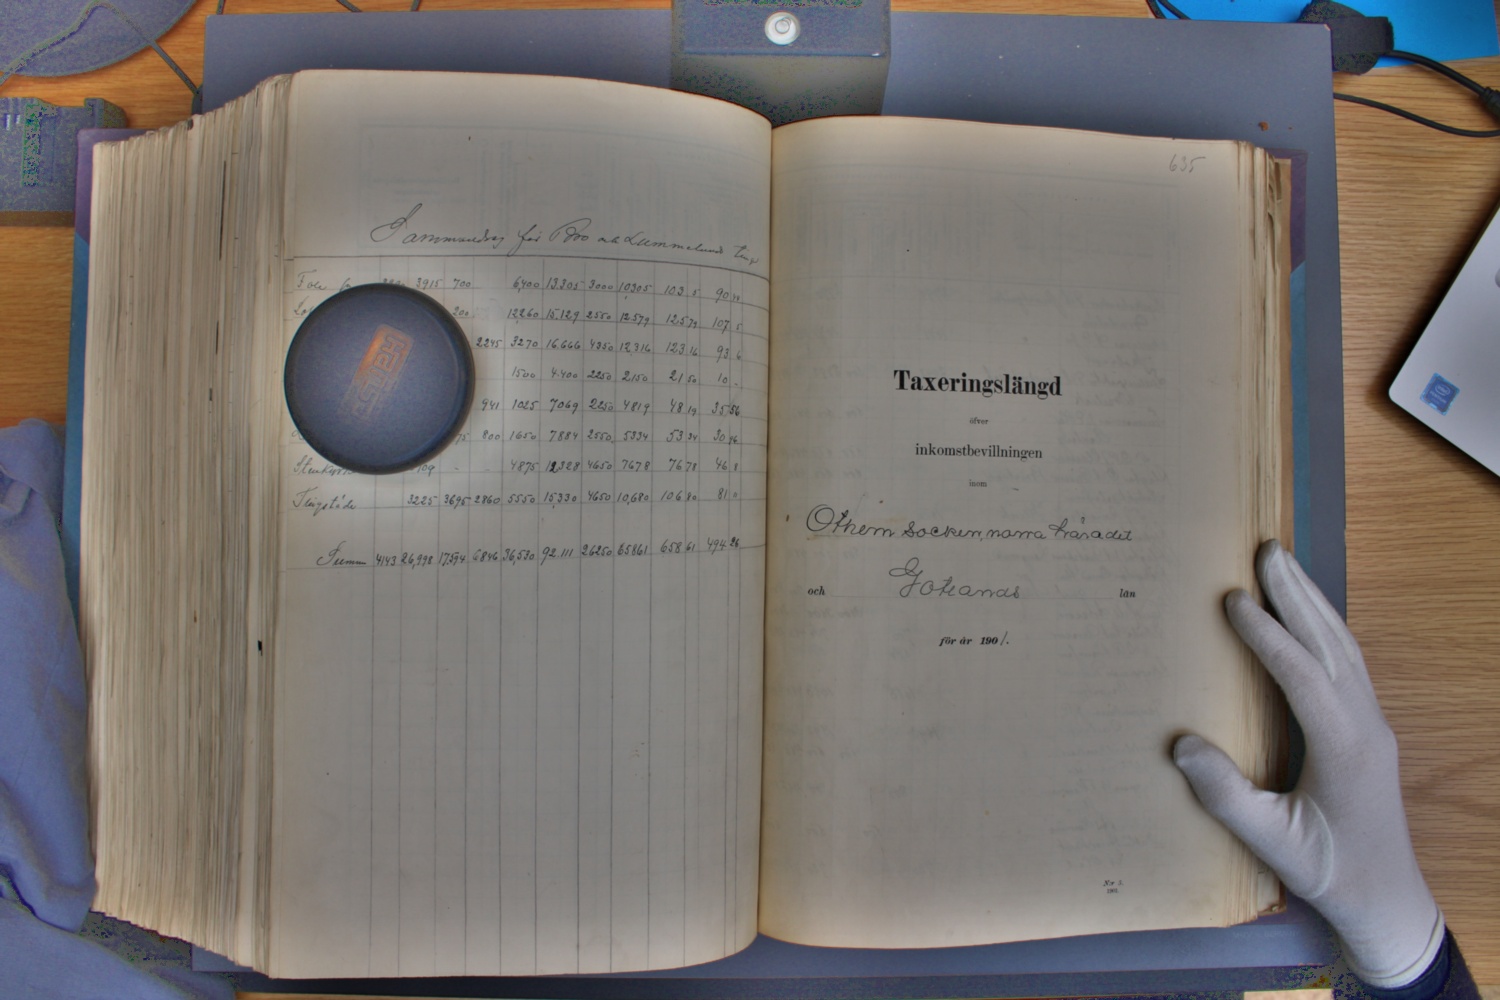 Sammandrag för Bro och Lummelunds tingl
Fole 3915 700 6,400 13.305 3000 10,305 103 5 90
200 12,260 15,129 2550 12,579 125 79 107 5
2245 3270 16.666 4350 12,316 123 16 93 6
1500 4.400 2250 2,150 21 50 10 -
941 1025 7069 2250 4819 48 19 35 56
75 800 1650 7884 2550 5334 53 34 30
Stenkyrka 109 - - 4875 12,328 4650 7678 76 78 46 8
Tingstäde 3225 3695 2860 5550 15,330 4650 10,680 106 80 81 0
Summa 4143 26,998 17,594 6846 36,530 92.111 26250 65861 658 61 494 26
635
Taxeringslängd
öfver
inkomstbevillningen
inom
Othem socken, norra häradet
och Gotlands län
för år 190/.
N:o 5.
190.